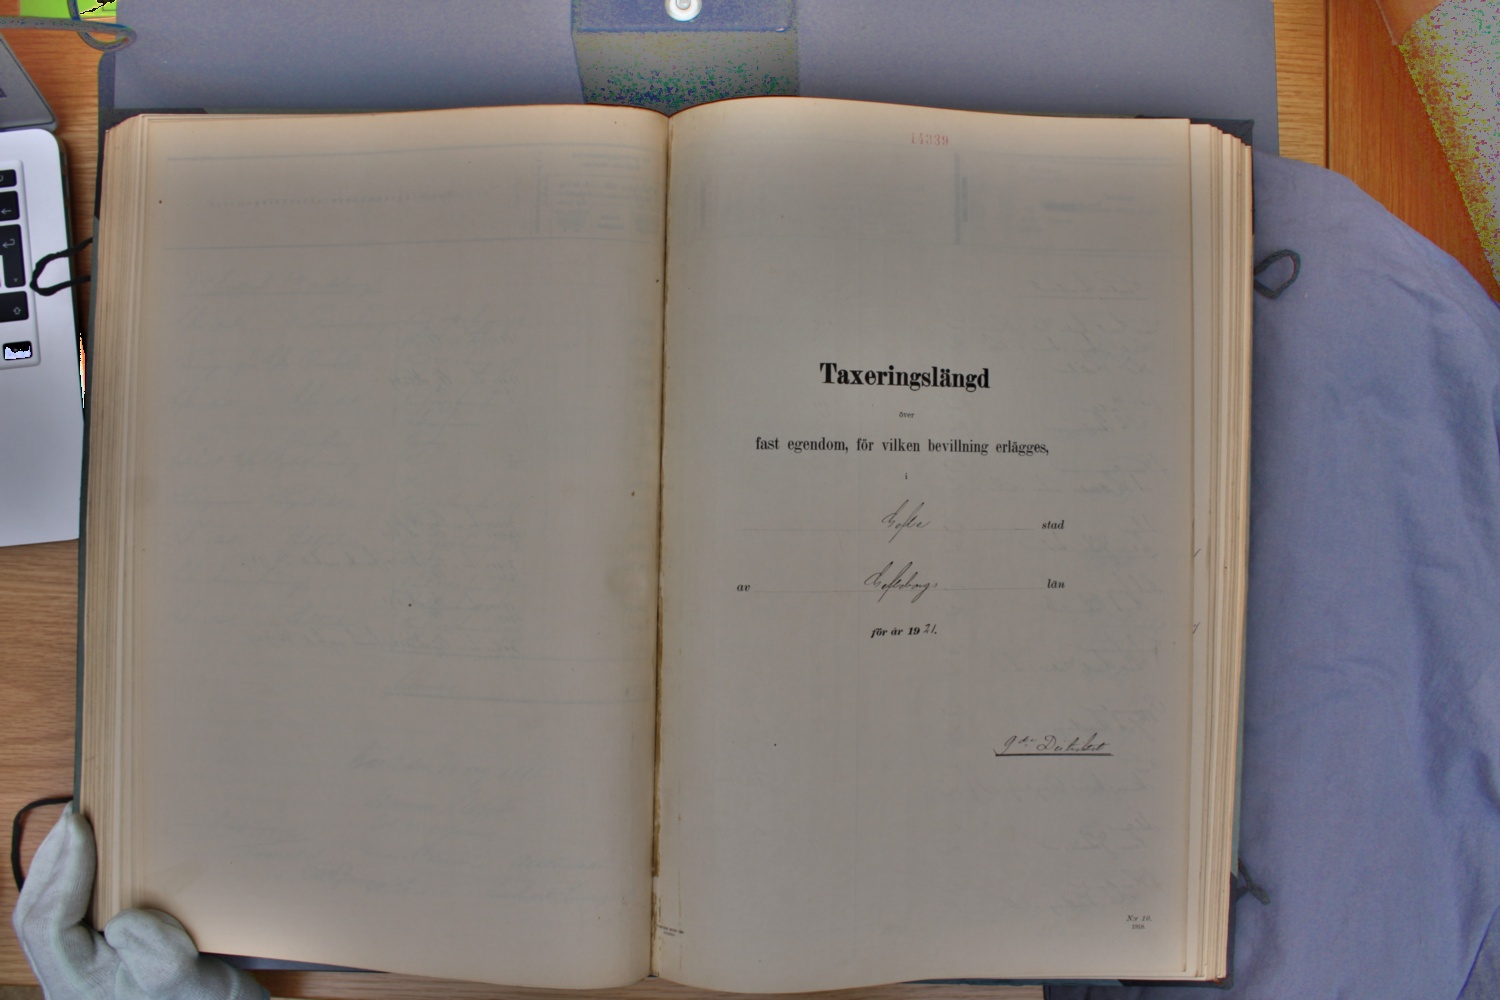 14339
Taxeringslängd
över
fast egendom, för vilken bevillning erlägges,
i
Gefle stad
av Gefleborgs län
för år 1921.
9de Distriktet
N:r 10.
1918.